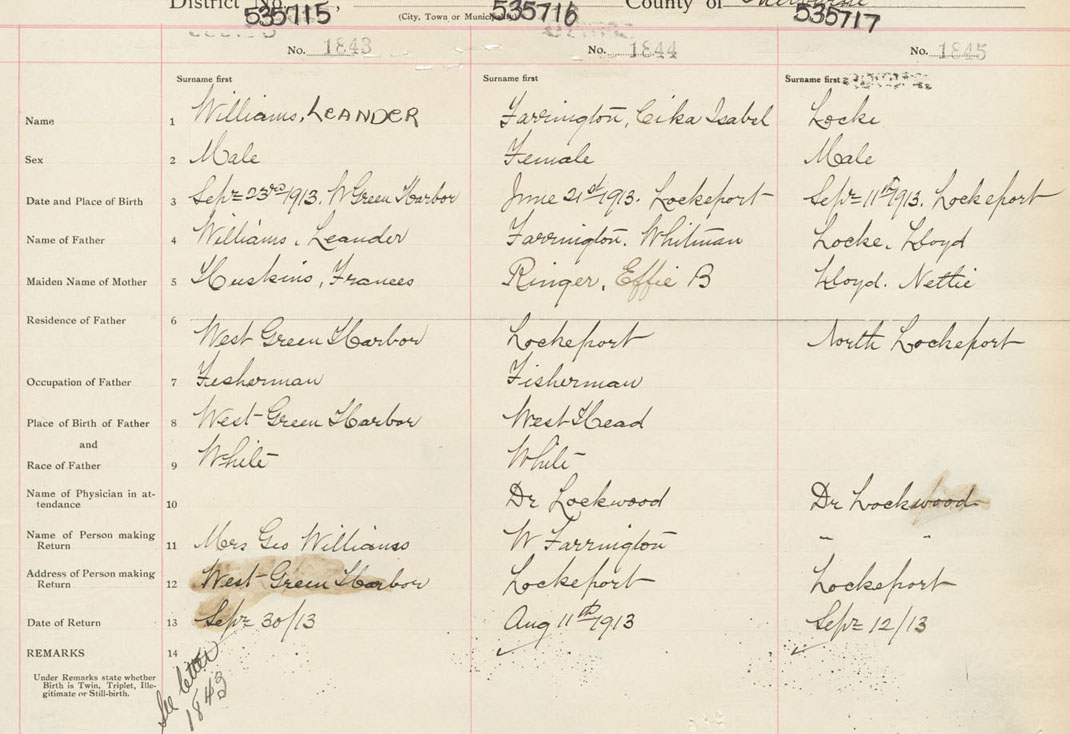 District No. 535715, 535716 County of 535717
(City, Town or Municipality)
No. 1843 No. 1844 No. 1845
Surname first Surname first Surname first
Name 1 Williams, LEANDER Farrington, Cika Isabel Locke
Sex 2 Male Female Male
Date and Place of Birth 3 Sept 23rd 1913. W Green Harbor June 21st 1913. Lockeport Sept 11th 1913. Lockeport
Name of Father 4 Williams, Leander Farrington. Whitman Locke, Lloyd
Maiden Name of Mother 5 Huskins, Frances Ringer, Effie B Lloyd. Nettie
Residence of Father 6
West Green Harbor Lockeport North Lockeport
Occupation of Father 7 Fisherman Fisherman
Place of Birth of Father 8 West Green Harbor West Head
and
Race of Father 9 White White
Name of Physician in at-
tendance 10 Dr Lockwood Dr Lockwood
Name of Person making
Return 11 Mrs Geo Williams W Farrington " "
Address of Person making
Return 12 West Green Harbor Lockeport Lockeport
Date of Return 13 Sept 30/13 Aug 11th 1913 Sept 12/13
REMARKS 14
Under Remarks state whether
Birth is Twin, Triplet, Ille-
gitimate or Still-birth.
See letter
1843